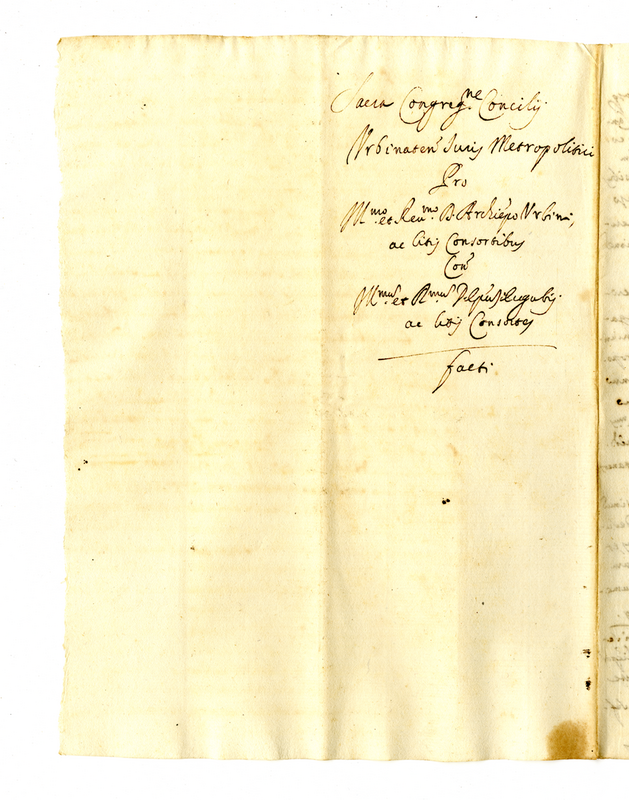 Sacra Congreg.ne Concilij
Urbinaten' Juris Metropolitici
Pro
Illmo et Reumo D. Archiepo Urbini,
ac litis Consortibus
Con'
Illmus et Rmus
ac litis Consortes
facti